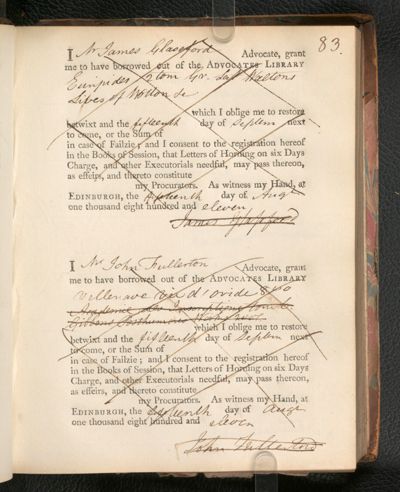 83.
I Mr James Glassford Advocate, grant
me to have borrowed out of the ADVOCATES LIBRARY
Euripides 2 tom Gr. Lat Waltons
Lives of Wotton &c
which I oblige me to restore
betwixt and the fifteenth day of Septem next
to come, or the Sum of
in case of Failzie; and I consent to the registration hereof
in the Books of Session, that Letters of Horning on six Days
Charge, and other Executorials needful, may pass thereon,
as effeirs, and thereto constitute
my Procurators. As witness my Hand, at
EDINBURGH, the fifteenth day of Augt
one thousand eight hundred and eleven
James Glassford
I Mr John Fullerton Advocate, grant
me to have borrowed out of the ADVOCATES LIBRARY
Villenave Vie d'Ovide 8vo
Academie des Inscriptions
Gibbons Posthumous Works
which I oblige me to restore
betwixt and the fifteenth day of Septem next
to come, or the Sum of
in case of Failzie; and I consent to the registration hereof
in the Books of Session, that Letters of Horning on six Days
Charge, and other Executorials needful, may pass thereon,
as effeirs, and thereto constitute
my Procurators. As witness my Hand, at
EDINBURGH, the day of Augt
one thousand eight hundred and eleven
John Fullerton